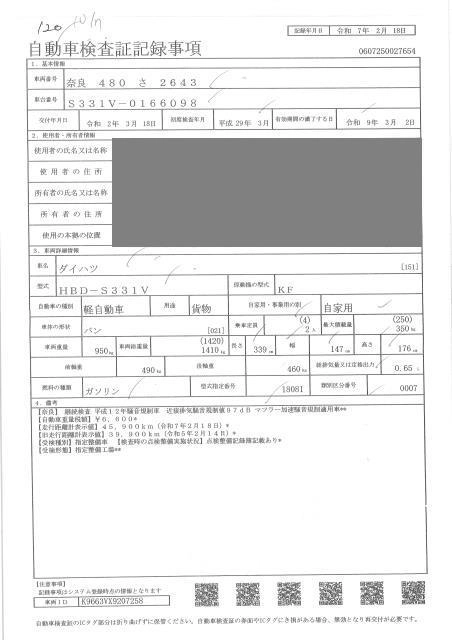 120
記録年月日 令和 7年 2月 18日
自動車検査証記録事項
0607250027654
1. 基本情報
車両番号 奈良 480 さ 2643
車台番号 S331V-0166098
交付年月日 令和 2年 3月 18日 初度検査年月 平成29年 3月 有効期間の満了する日 令和 9年 3月 2日
2. 使用者・所有者情報
使用者の氏名又は名称
使用者の住所
所有者の氏名又は名称
所有者の住所
使用の本拠の位置
3. 車両詳細情報
車名 ダイハツ [151]
型式 HBD-S331V 原動機の型式 KF
自動車の種別 軽自動車 用途 貨物 自家用・事業用の別 自家用
車体の形状 バン [021] 乗車定員 (4) 2人 最大積載量 (250) 350kg
車両重量 950kg 車両総重量 (1420) 1410kg 長さ 339cm 幅 147cm 高さ 176cm
前軸重 490kg 後軸重 460kg 総排気量又は定格出力 0.65L
燃料の種類 ガソリン 型式指定番号 18081 類別区分番号 0007
4. 備考
【奈良】 継続検査 平成12年騒音規制車 近接排気騒音規制値97dB マフラー加速騒音規制適用車**
【自動車重量税額】¥6,600*
【走行距離計表示値】45,900km(令和7年2月18日)*
【旧走行距離計表示値】39,900km(令和5年2月14日)*
【受検種別】指定整備車 【検査時の点検整備実施状況】点検整備記録簿記載あり*
【受検形態】指定整備工場**
【注意事項】
記録事項はシステム登録時点の情報となります
車両ID K9663VX9207258
自動車検査証のICタグ部分は折り曲げずに保管ください。自動車検査証の券面やICタグにき損がある場合、無効となり再交付が必要です。